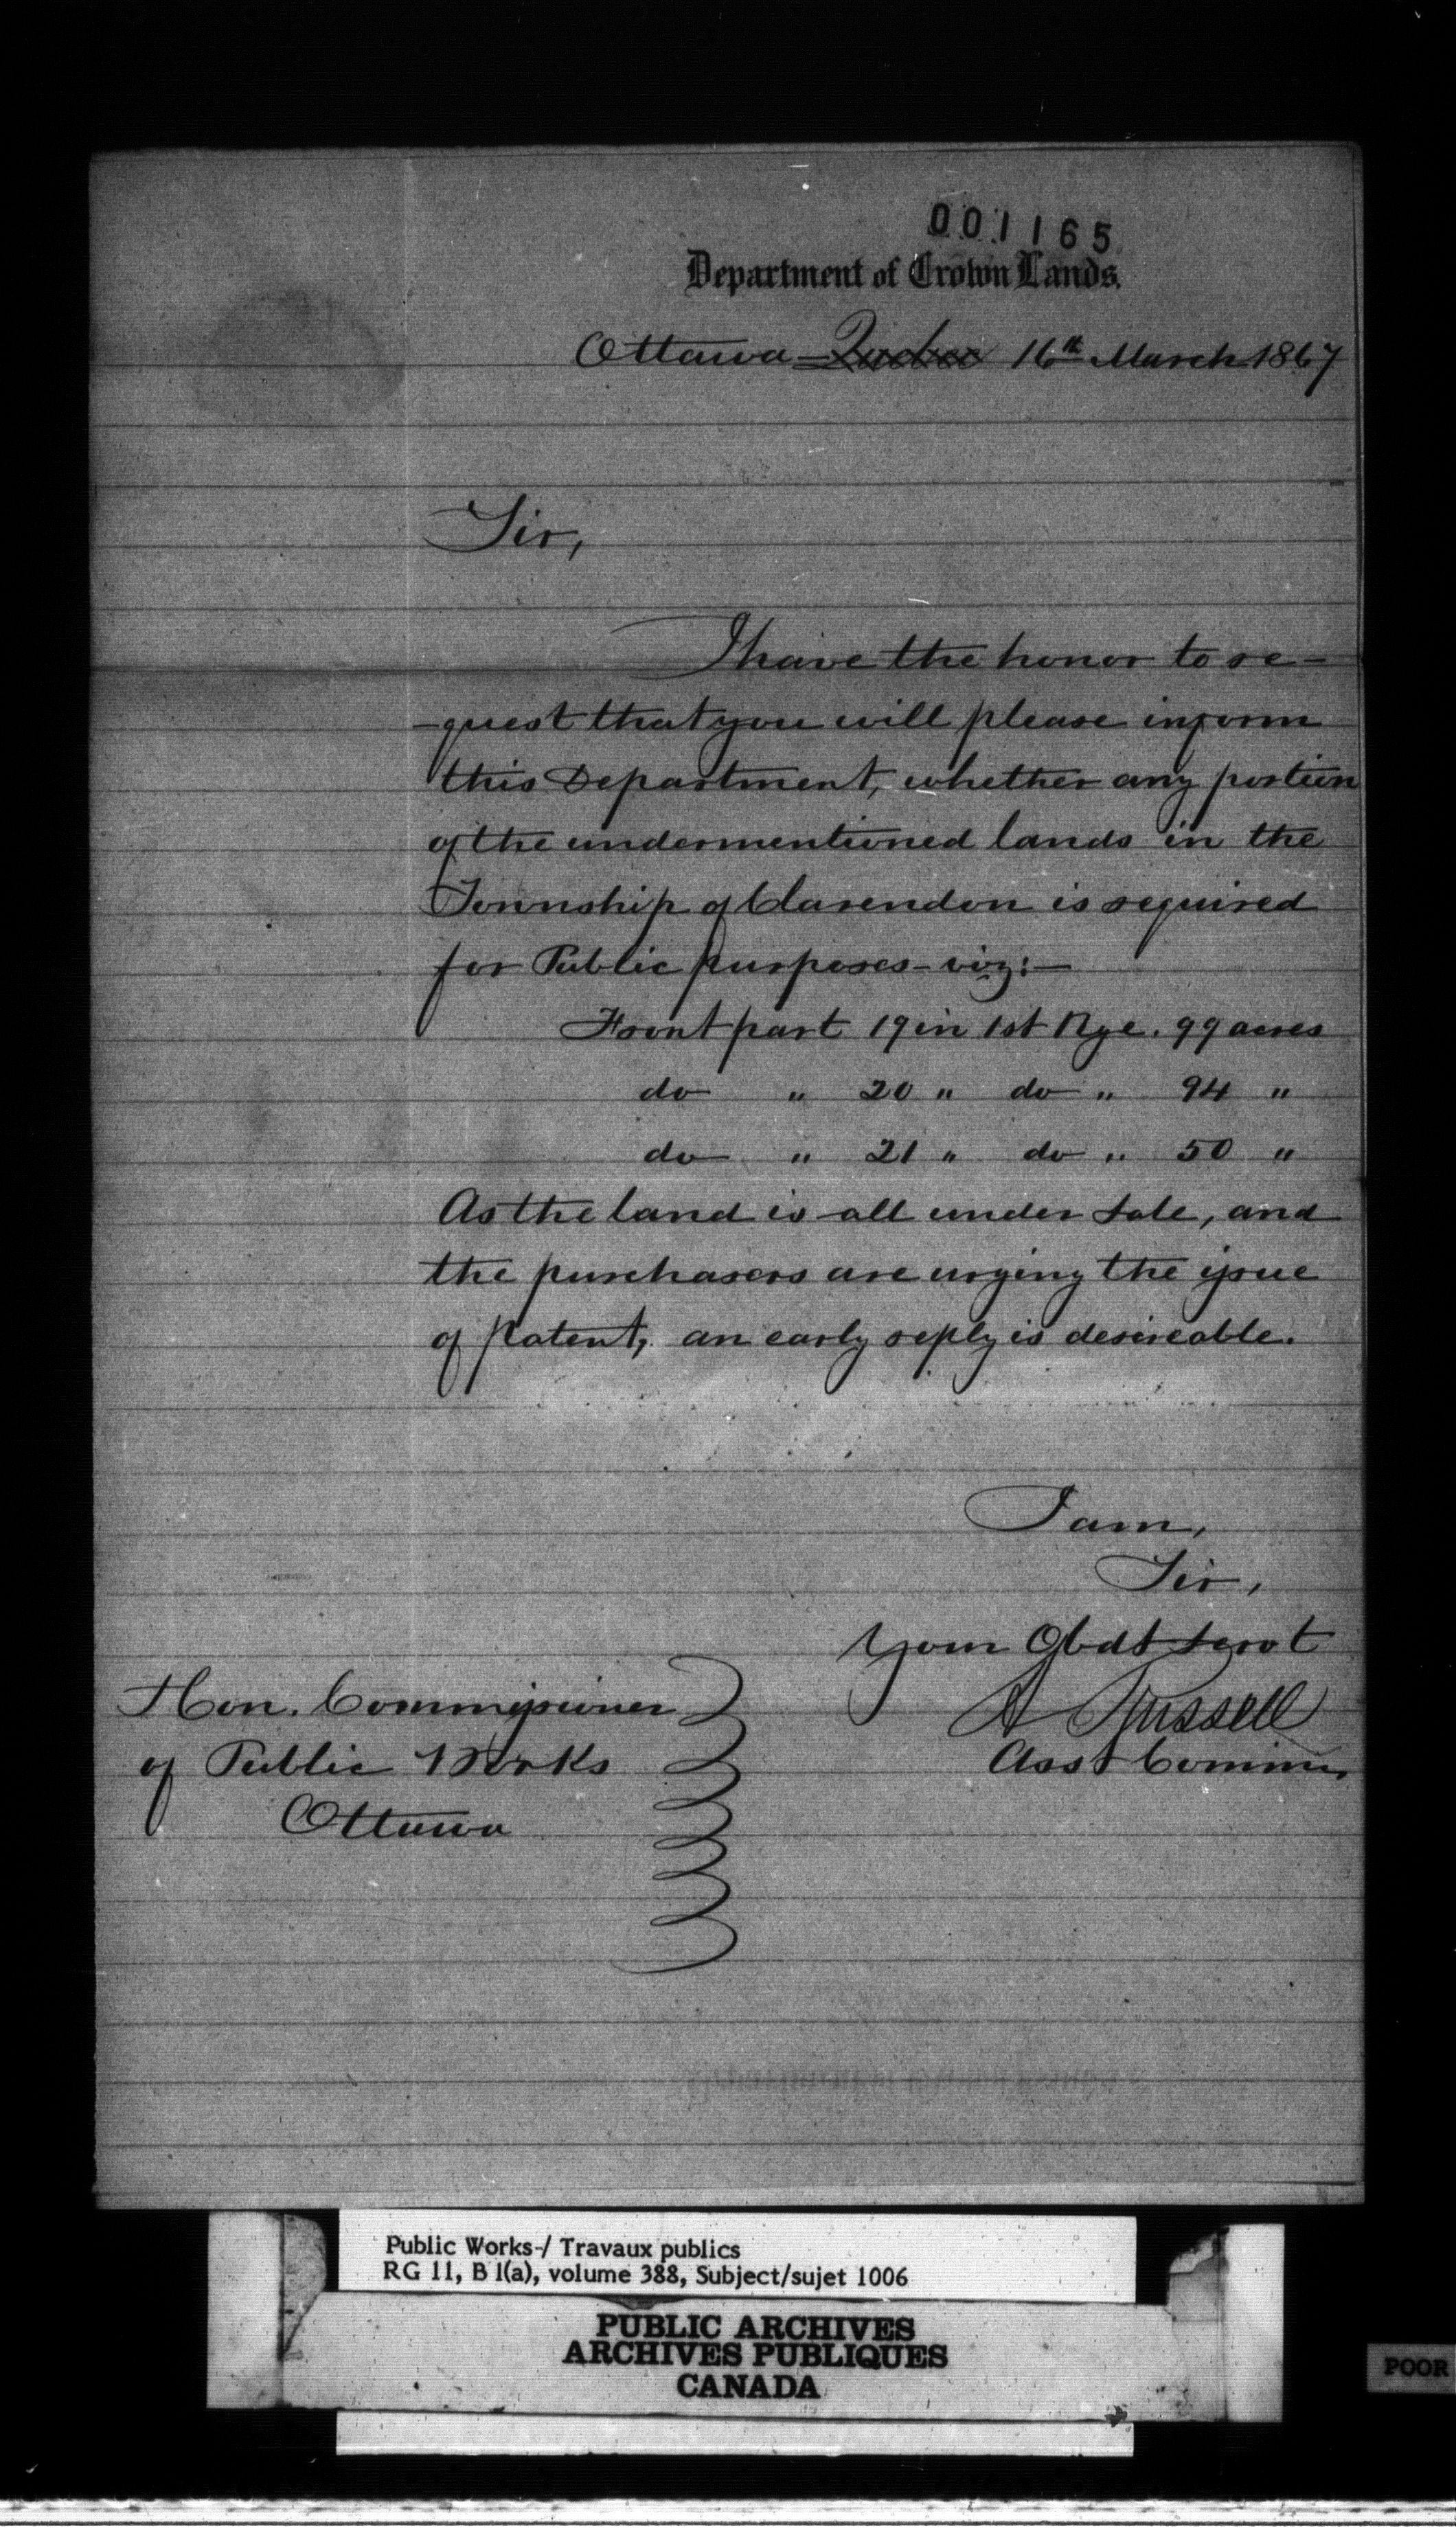 001165
Department of Crown Lands.
Ottawa Quebec 16th March 1867
Sir,
I have the honor to re-
-quest that you will please inform
this Department, whether any portion
of the undermentioned lands in the
Township of Clarendon is required
for Public purposes - viz:-
Front part 19 in 1st Rge. 99 acres
do " 20 " do " 94 "
do " 21 " do " 50 "
As the land is all under Sale, and
the purchasers are urging the issue
of Patent, an early reply is desireable.
I am,
Sir,
Your Obdt Servt
A Russell
Asst Commr
Hon. Commissioner
of Public Works
Ottawa
Public Works-/ Travaux publics
RG 11, B 1(a), volume 388, Subject/sujet 1006
PUBLIC ARCHIVES
ARCHIVES PUBLIQUES
CANADA
POOR